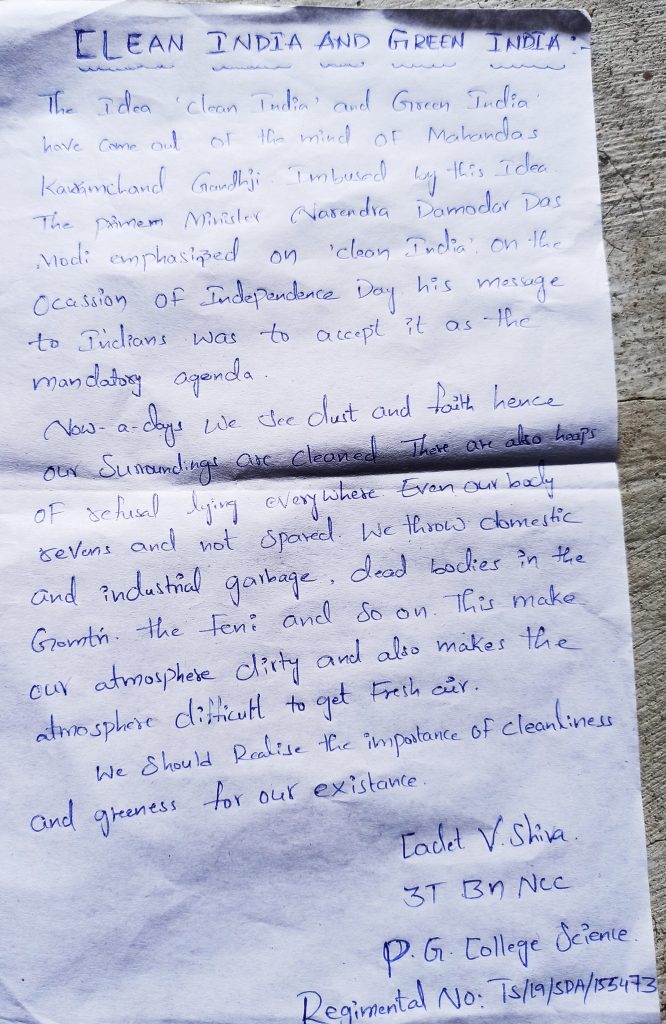 CLEAN INDIA AND GREEN INDIA :-
The Idea 'Clean India' and Green India'
have come out of the mind of Mahandas
Karimchand Gandhji. Imbused by this Idea
The primem Minister Narendra Damodar Das
Modi emphasized on 'clean India'. on the
Ocassion of Independence Day his message
to Indians was to accept it as the
mandatory agenda.
Now-a-days we see dust and faith hence
our Surroundings are cleaned There are also heaps
of refusal lying everywhere. Even our body
revens and not spared. We throw domestic
and industrial garbage, dead bodies in the
the and so on. This make
our atmosphere dirty and also makes the
atmosphere difficutl to get Fresh air.
We Should Realise the importance of cleanliness
and greeness for our existance.
Cadet V. Shiva.
3T Bn NCC
P.G. College Science.
Regimental No: TS/19/SDA/155473